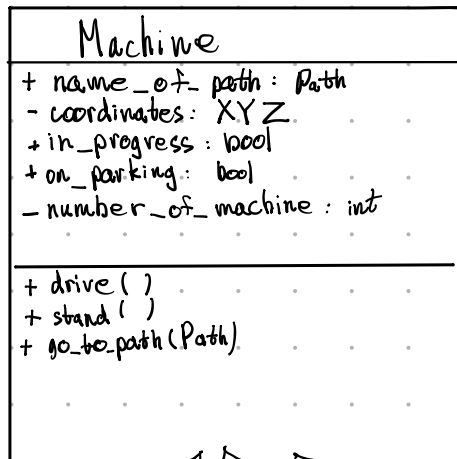 Machine
+ name_of_path : Path
- coordinates : XYZ
+ in_progress : bool
+ on_parking : bool
- number_of_machine : int
+ drive()
+ stand()
+ go_to_path(Path)